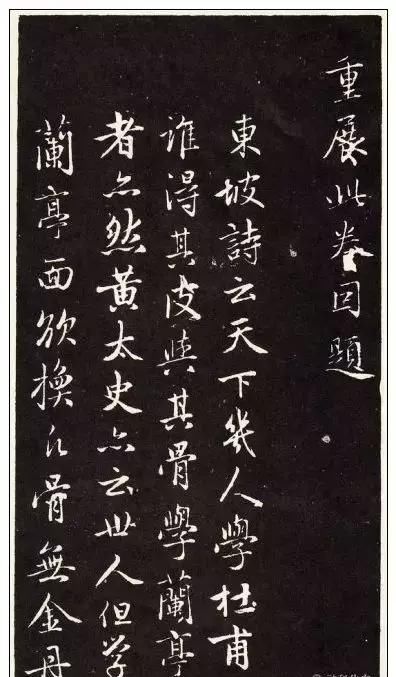 重展此卷因題
東坡詩云天下幾人學杜甫
誰得其皮與其骨學蘭亭
者亦然黃太史亦云世人但学
蘭亭面欲換凡骨無金丹